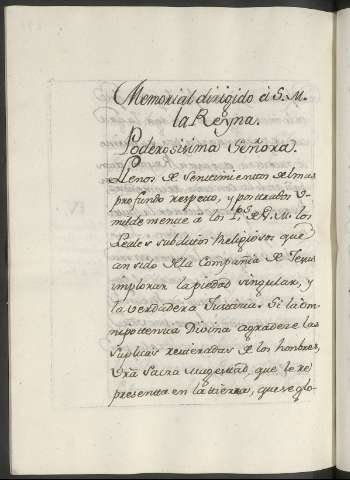 Memorial dirigido á S. M.
la Reyna.
Poderosissima Señora.
Llenos de Sentimientos del mas
profundo respeto, y postrados u-
mildemence a los P.s de V. M. los
Leales subditos Religiosos que
an sido de la Compañia de Jesus
imploran la piedad singular, y
la verdadera Justicia. Si la om-
nipottencia Divina agradece las
suplicas reiteradas de los hombres,
Vrã Sacra Magestad, que le re
presentta en la tierra, que se glo-